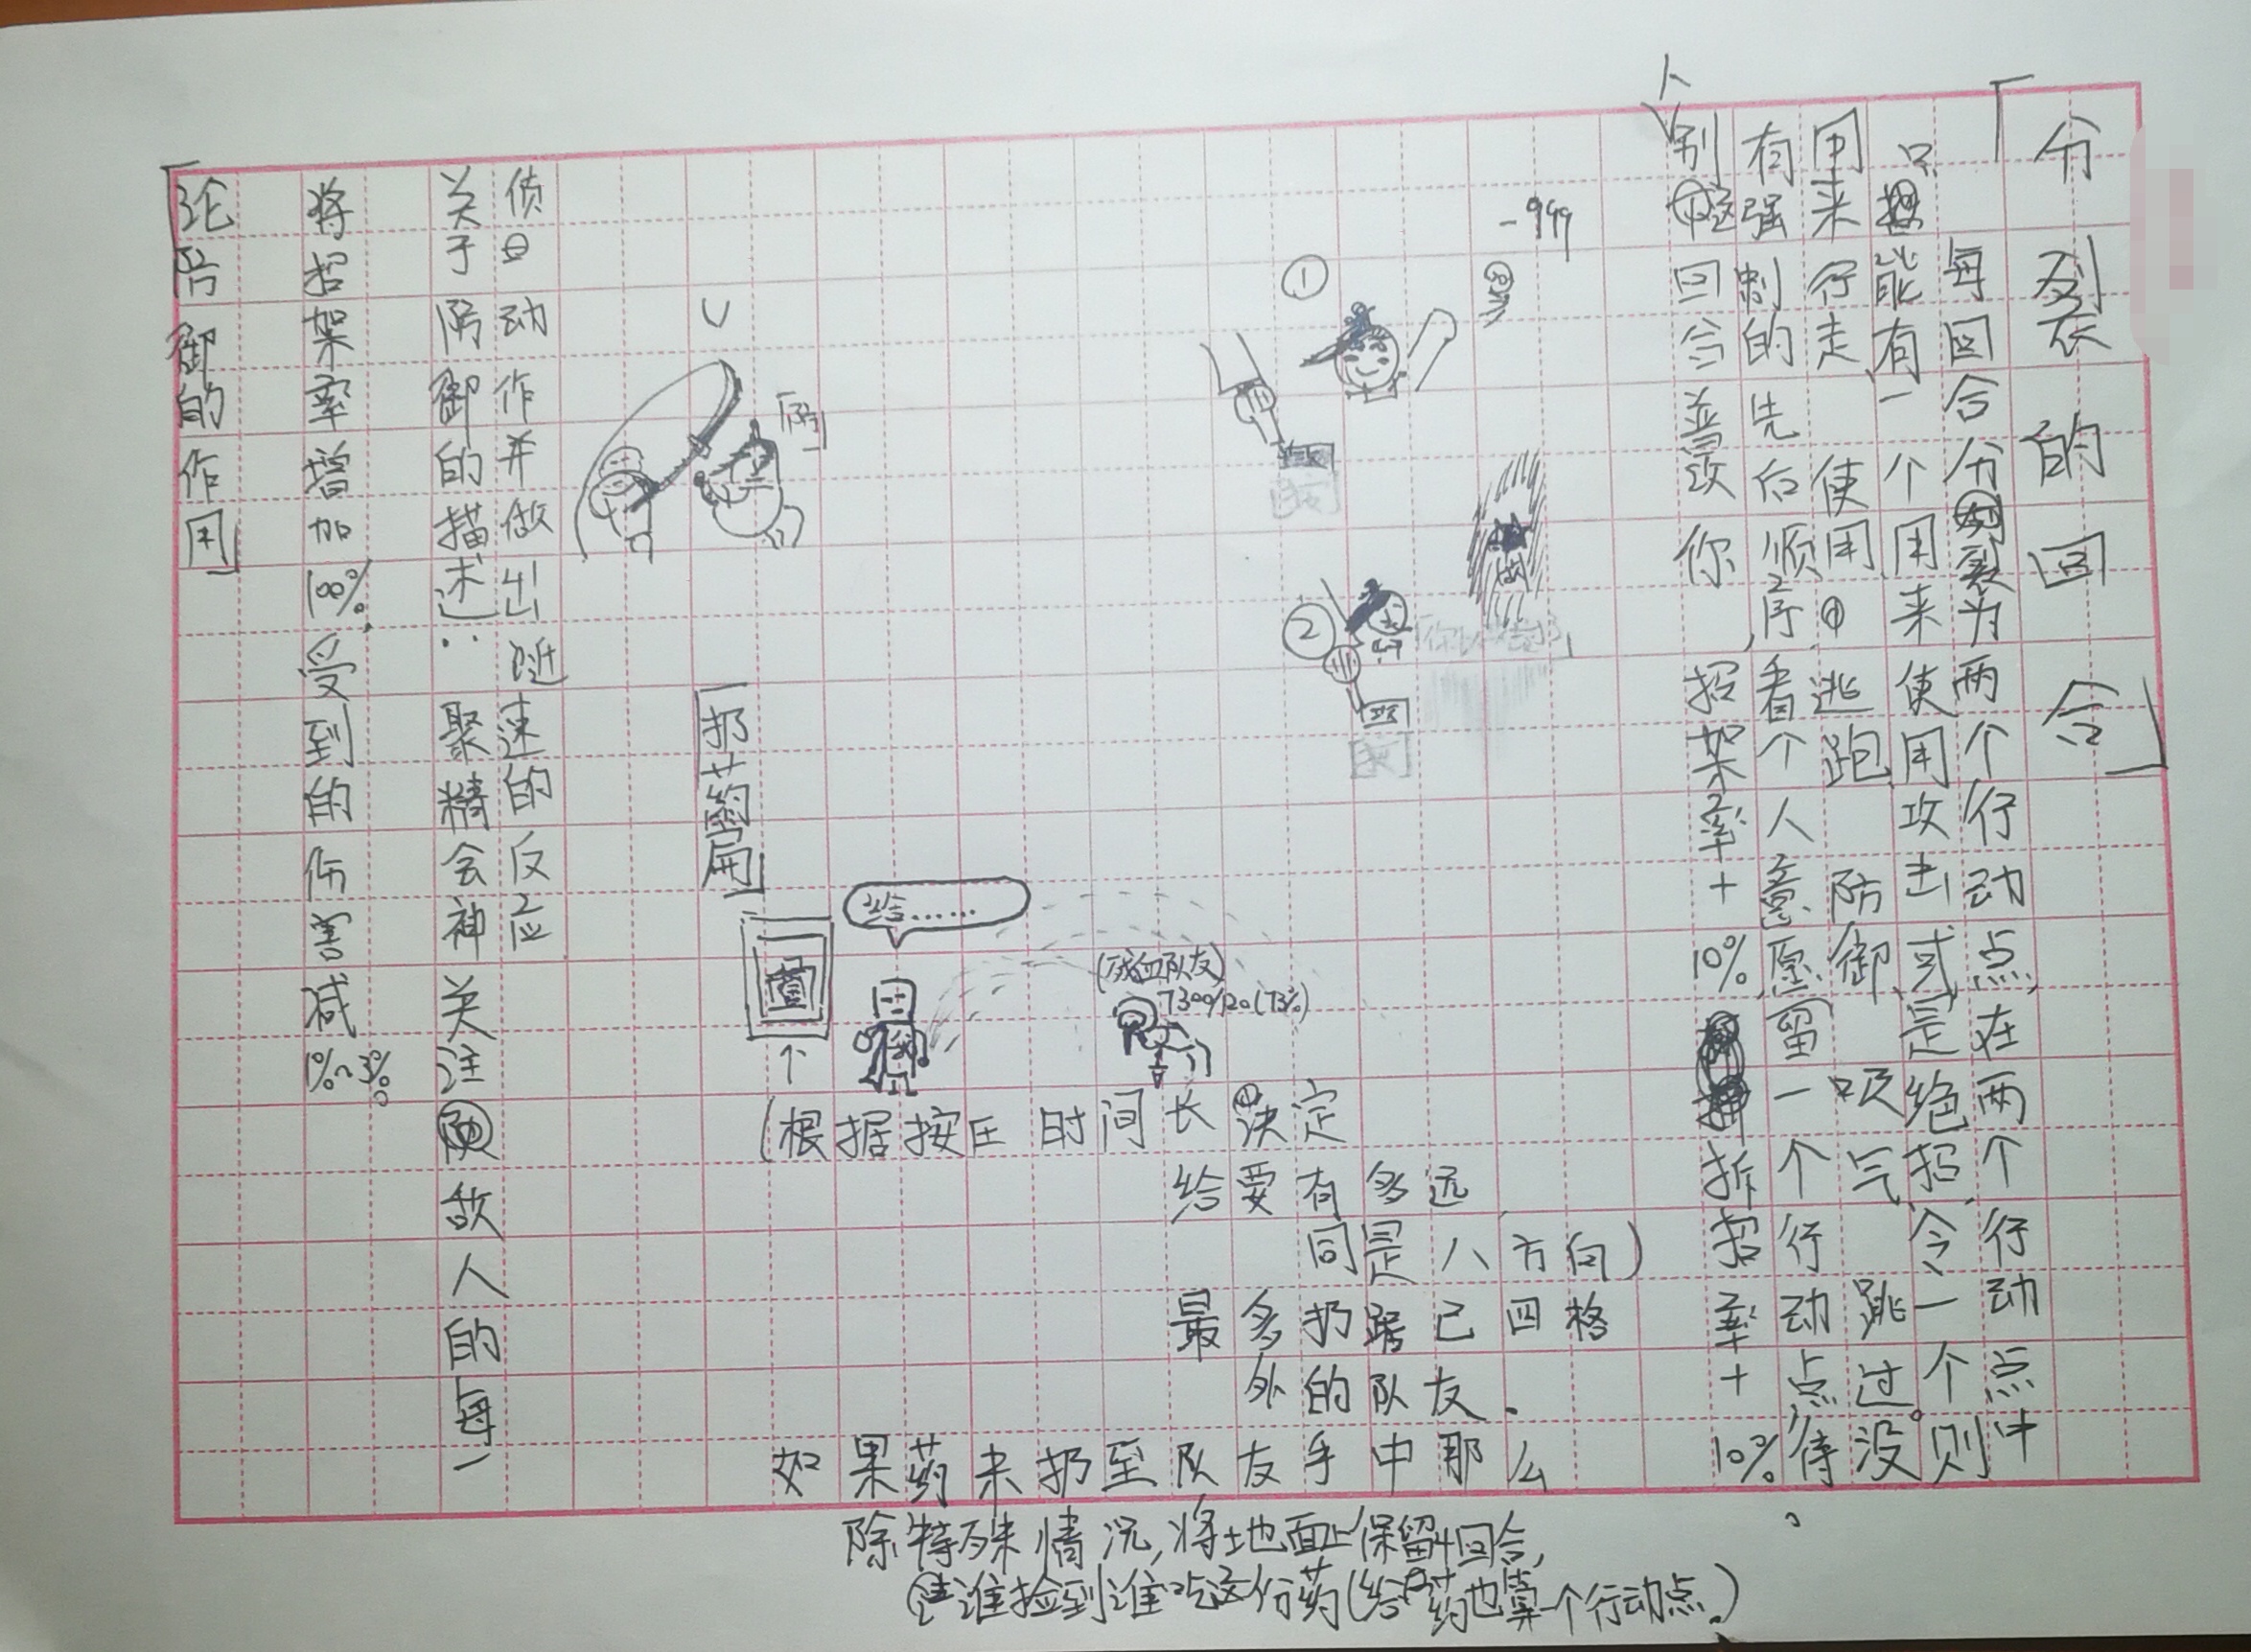 「分裂的回合」
每回合分裂为两个行动点,在两个行动点中
只能有一个用来使用攻击或是绝招,令一个则
用来行走、使用、逃跑、防御、吸气、跳过。没
有强制的先后顺序,看个人意愿留一个行动点待
别人这回合普攻你招架率+10%,拆招率+10%。
①
-999
②
「论防御的作用」
将招架率增加100%,受到的伤害减10%~30%。
关于防御的描述:聚精会神关注敌人的每一
侦动作并做出迅速的反应
「防」
「扔药
给……
(残血队友)
(根据按压时间长决定
给要有多远
同是八方向)
最多扔距己四格
外的队友.
如果药未扔至队友手中那么
除特殊情况,将地面上保留1回合,
谁捡到谁吃这份药(给药也算一个行动点.)